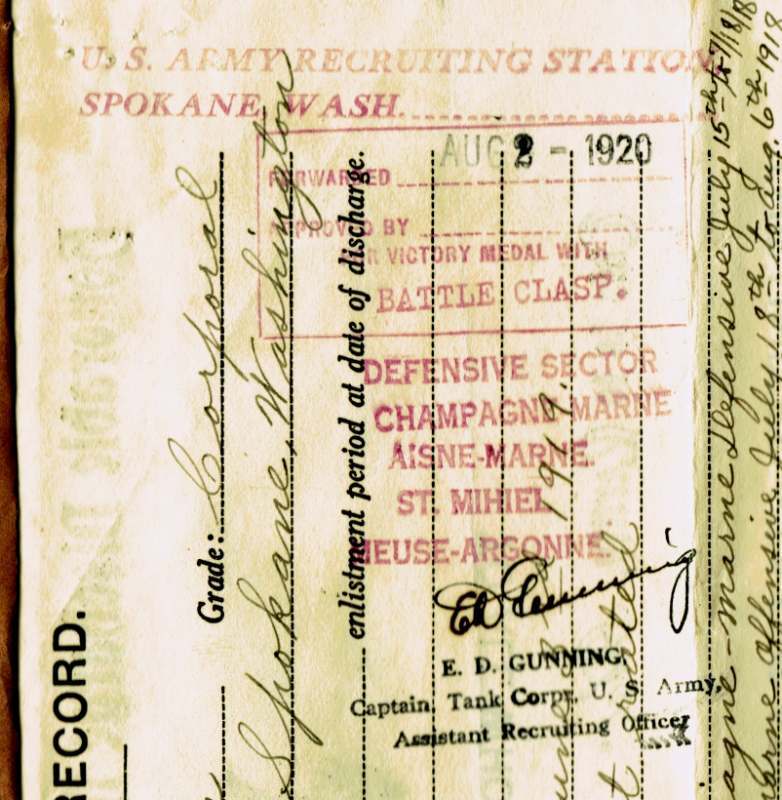 U. S. ARMY RECRUITING STATION,
SPOKANE, WASH.
AUG 2 - 1920
FORWARDED
APPROVED BY
FOR VICTORY MEDAL WITH
BATTLE CLASP.
DEFENSIVE SECTOR
CHAMPAGNE MARNE
AISNE-MARNE.
ST. MIHIEL
MEUSE-ARGONNE.
Ed Gunning
E. D. GUNNING,
Captain, Tank Corps, U. S. Army,
Assistant Recruiting Officer
RECORD.
Grade: Corporal
Spokane, Washington
enlistment period at date of discharge.
1919.
agne-Marne Defensive July 15th to 7/18/18
Marne Offensive July 18th to Aug. 6th 1918